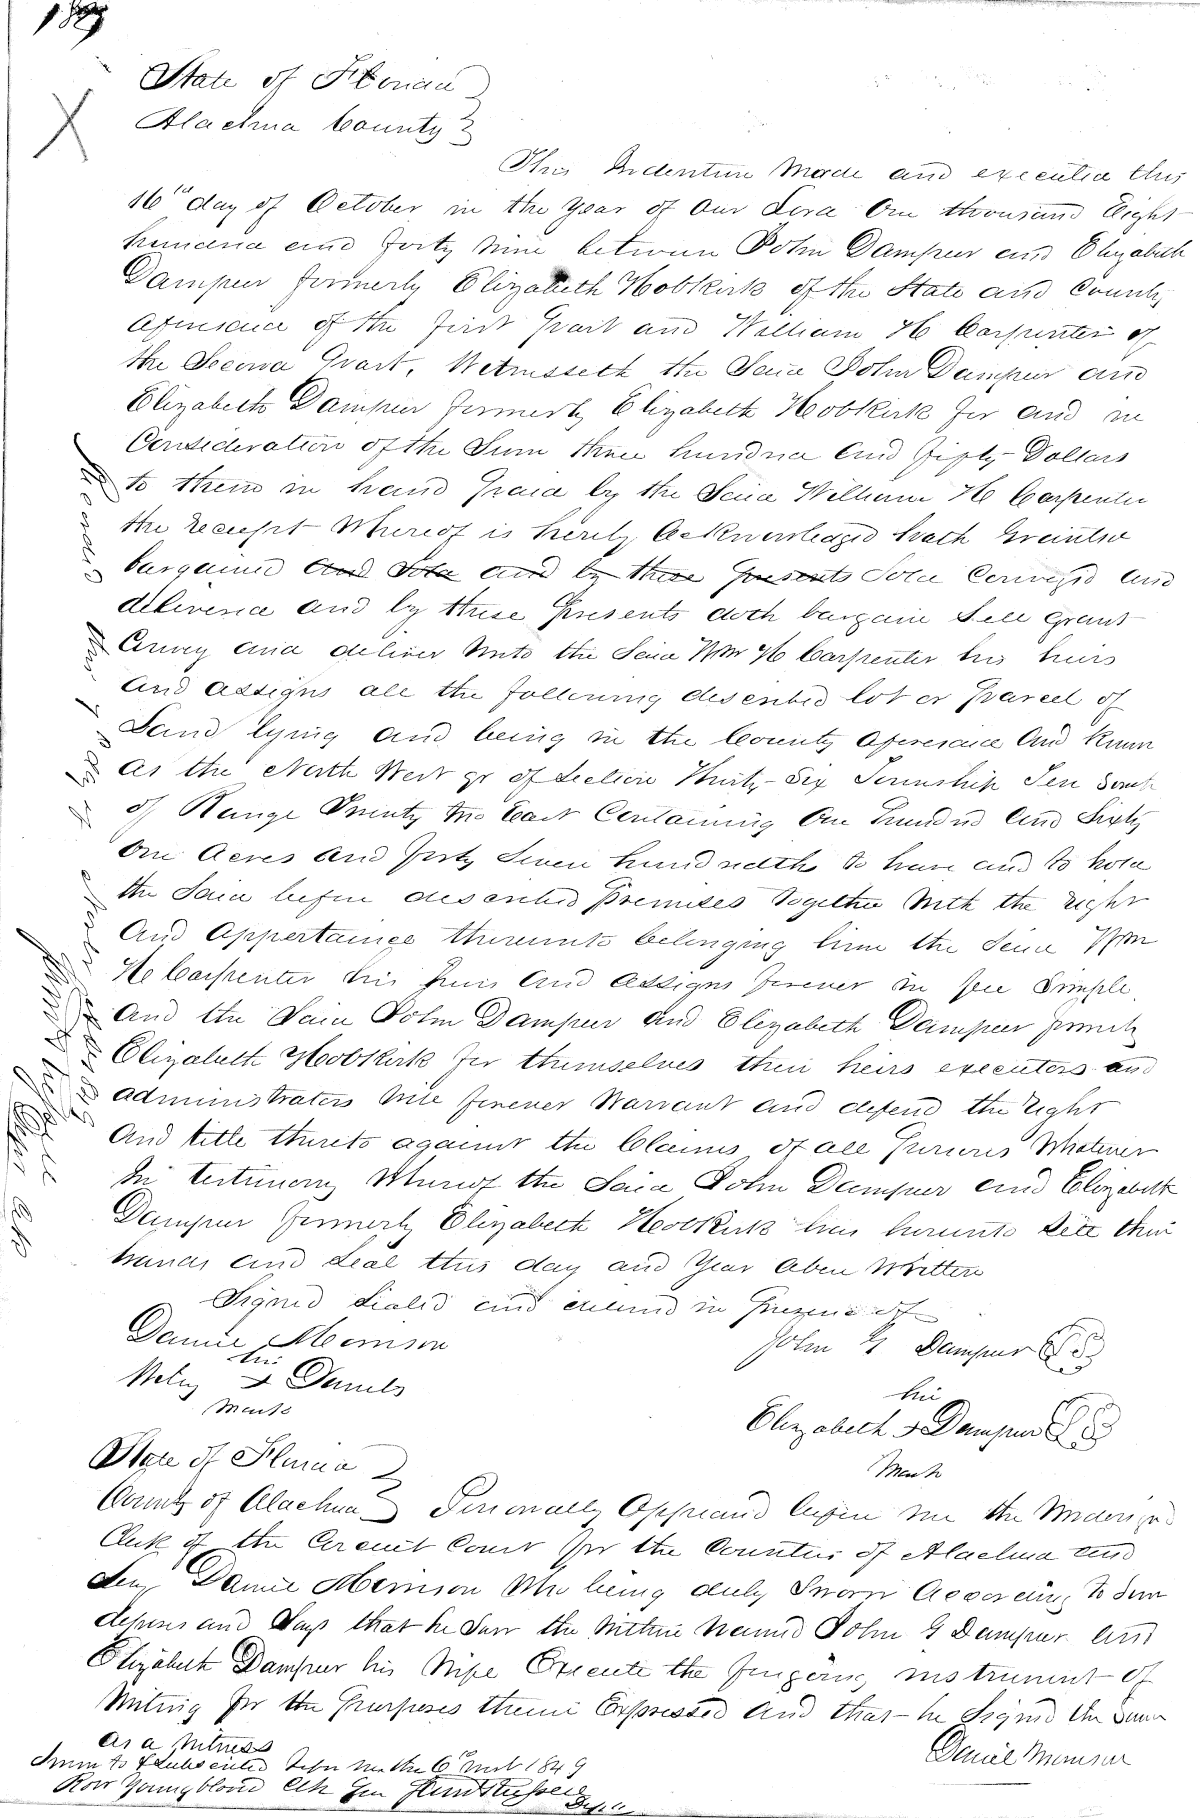 State of Florida
Alachua County
This Indenture Made and executed this
16th day of October in the Year of Our Lord One thousand Eight
hundred and forty Nine between John Dampier and Elizabeth
Dampier formerly Elizabeth Hobkirk of the State and County
aforesaid of the first Part and William H Carpenter of
the Second Part, Witnesseth the Said John Dampier and
Elizabeth Dampier formerly Elizabeth Hobkirk for and in
Consideration of the Sum three hundred and fifty Dollars
to them in hand Paid by the Said William H Carpenter
the receipt Whereof is hereby Acknowledged hath Granted
bargained and Sold and by these presents Sold Conveyed and
delivered and by these Presents doth bargain Sell grant
Convey and deliver Unto the Said Wm H Carpenter his heirs
and assigns all the following described lot or parcel of
Land lying and being in the County aforesaid and Known
as the North West qr of Section Thirty Six Township Ten South
of Range Twenty two East Containing One hundred and Sixty
One Acres and forty Seven hundredths to have and to hold
the Said before described Premises together With the right
And Appertaince thereunto belonging him the Said Wm
H Carpenter his heirs and assigns forever in fee Simple.
And the Said John Dampier and Elizabeth Dampier formerly
Elizabeth Hobkirk for themselves their heirs executors and
administrators Will forever Warrant and defend the right
And title thereto against the Claims of all Persons Whatever
In testimony Whereof the Said John Dampier and Elizabeth
Dampier formerly Elizabeth Hobkirk has hereunto Sett their
hands and Seal this day and Year above Written
Signed Sealed and in Presence of
Daniel Morrison
his
Daniels
mark
John G Dampier LS
his
Elizabeth + Dampier LS
Mark
State of Florida
County of Alachua Personally Appeared before me the Undersigned
Clerk of the Circuit Court for the Counties of Alachua and
Levy Daniel Morrison Who being duly Sworn According to Law
deposes and Says that he Saw the Within Named John G Dampier and
Elizabeth Dampier his Wife Execute the foregoing instrument of
Writing for the Purposes therein Expressed and that he Signed the Same
as a Witness
Daniel Morrison
Sworn to & Subscribed before me the 6th inst 1849
Youngblood Clk
Recorded this